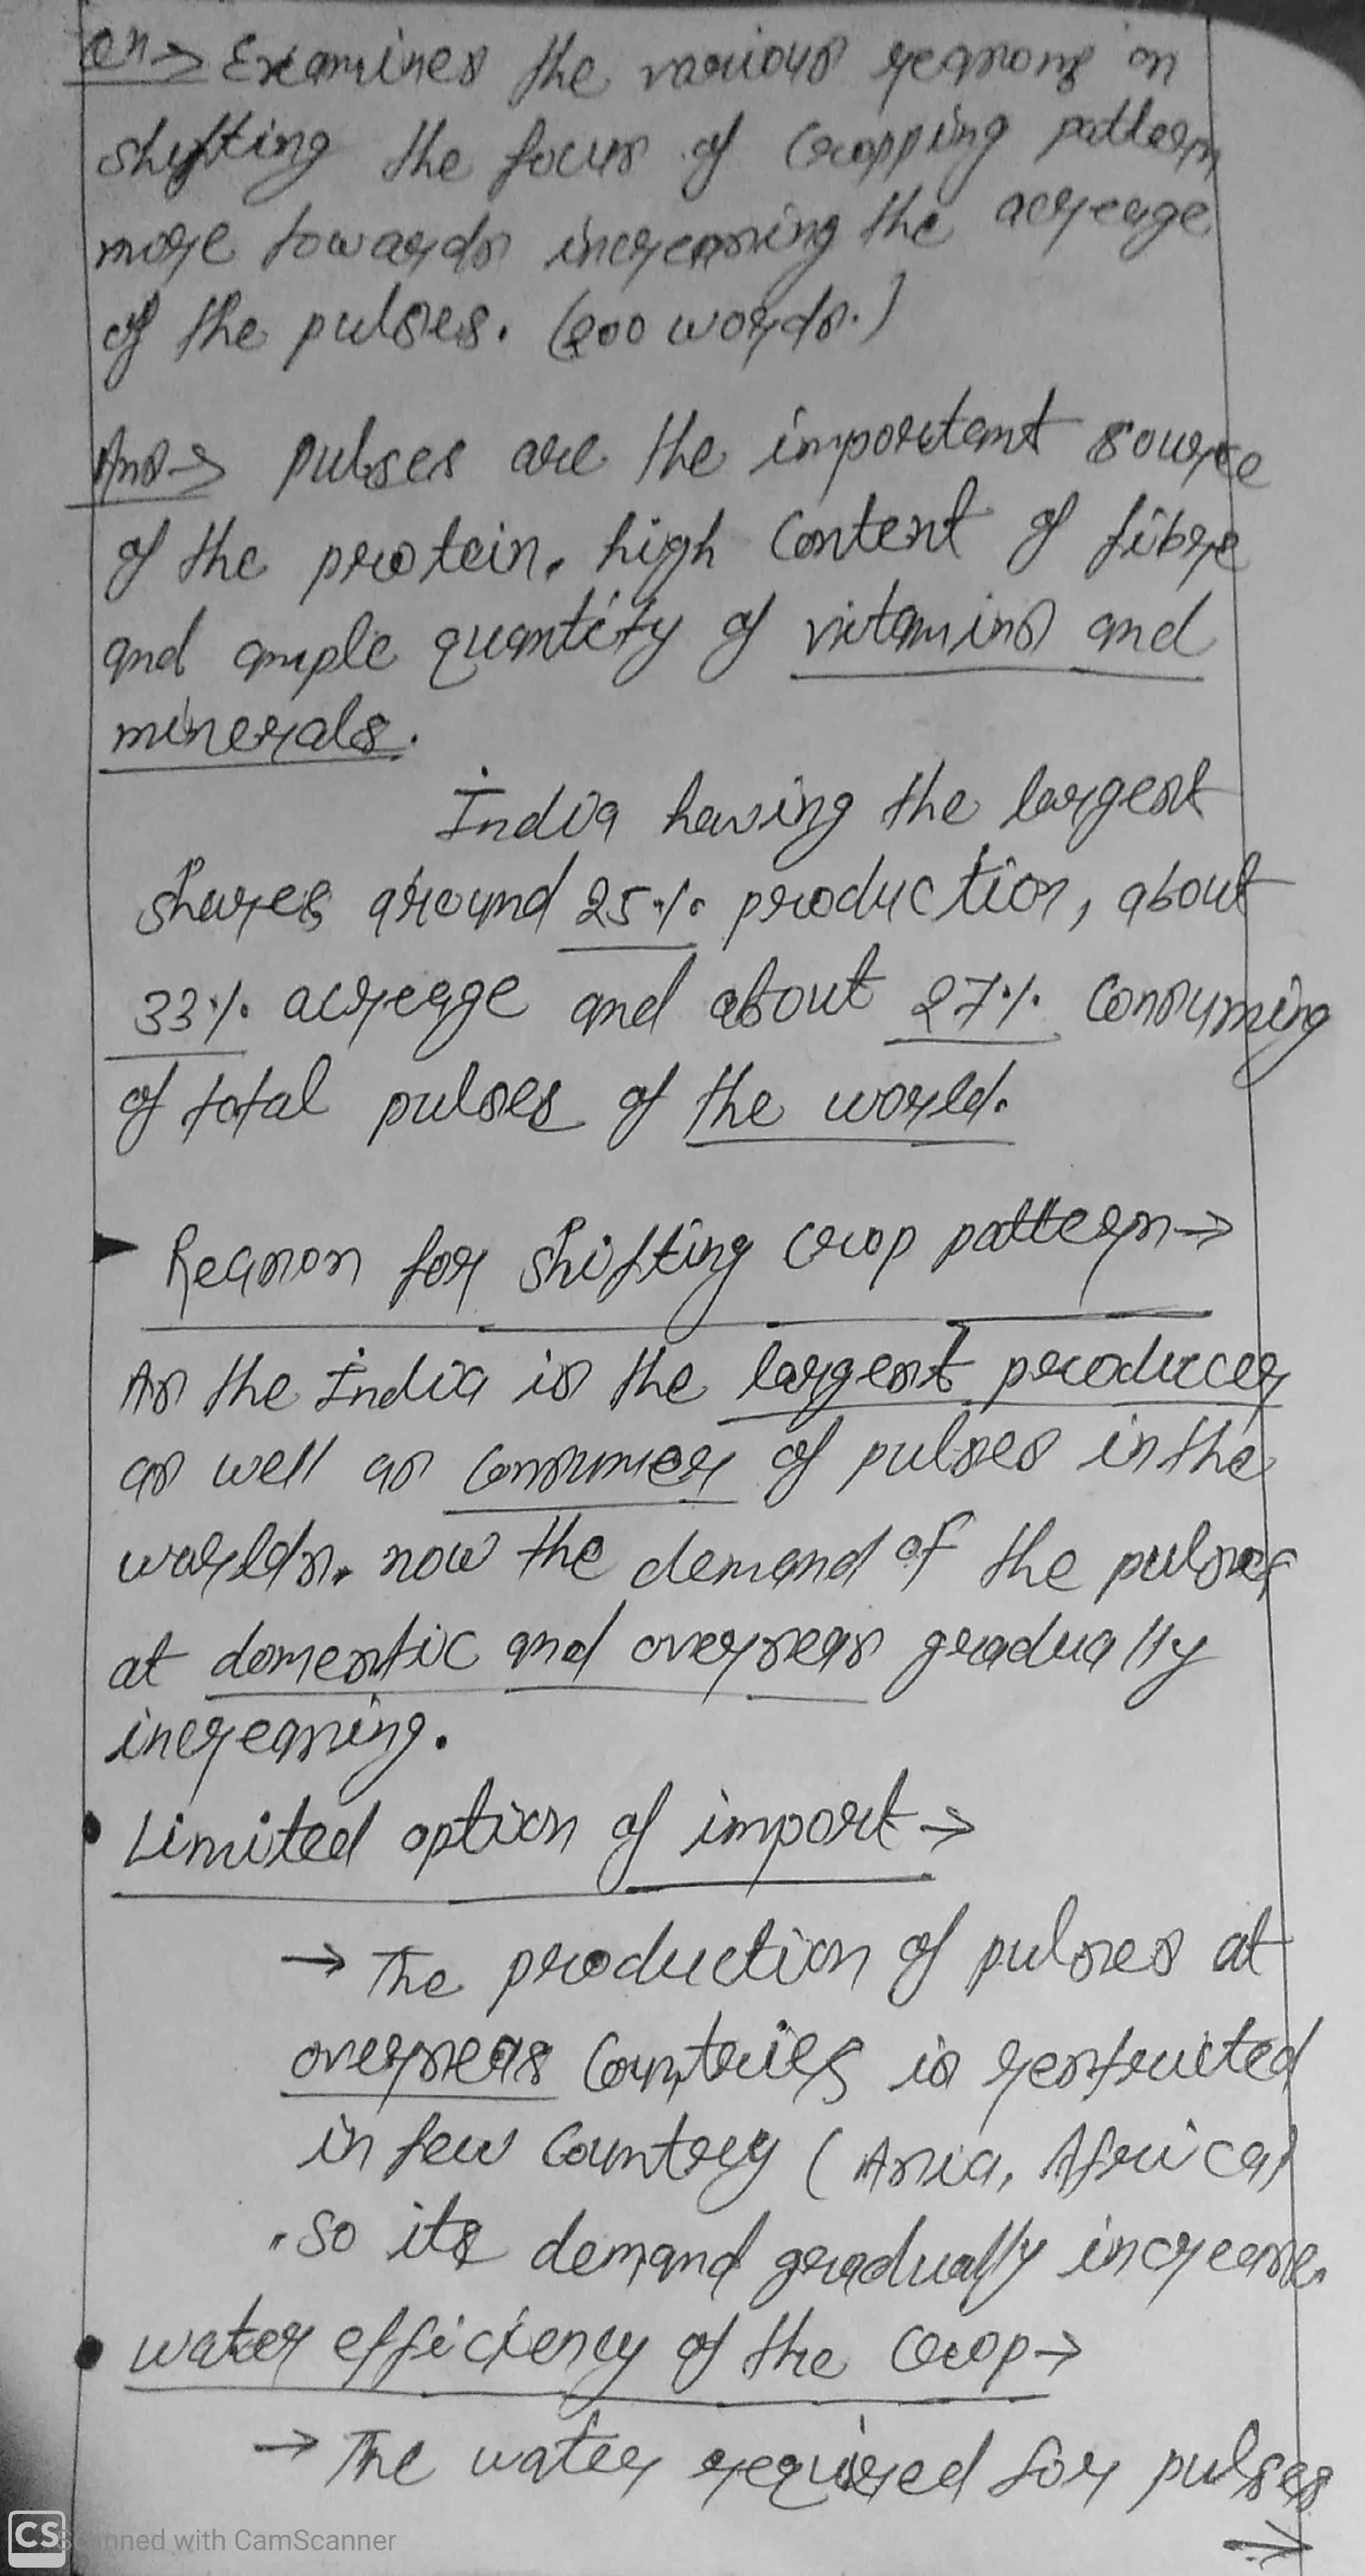 Qn → Examines the various reasons in
shifting the focus of Cropping pattern
more towards increasing the acreage
of the pulses. (200 words.)
Ans → pulses are the important source
of the protein. high Content of fibre
and ample quantity of vitamins and
minerals.
India having the largest
shares around 25% production, about
33% acreage and about 27% Consuming
of total pulses of the world.
Reason for shifting Crop pattern →
As the India is the largest producer
as well as Consumer of pulses in the
worlds. now the demand of the pulses
at domestic and overseas gradually
increasing.
• Limited option of import →
→ The production of pulses at
overseas Countries is restricted
in few Country (Asia, Africa)
. so its demand gradually increase.
• water efficiency of the Crop →
→ The water required for pulses
→
CS Scanned with CamScanner